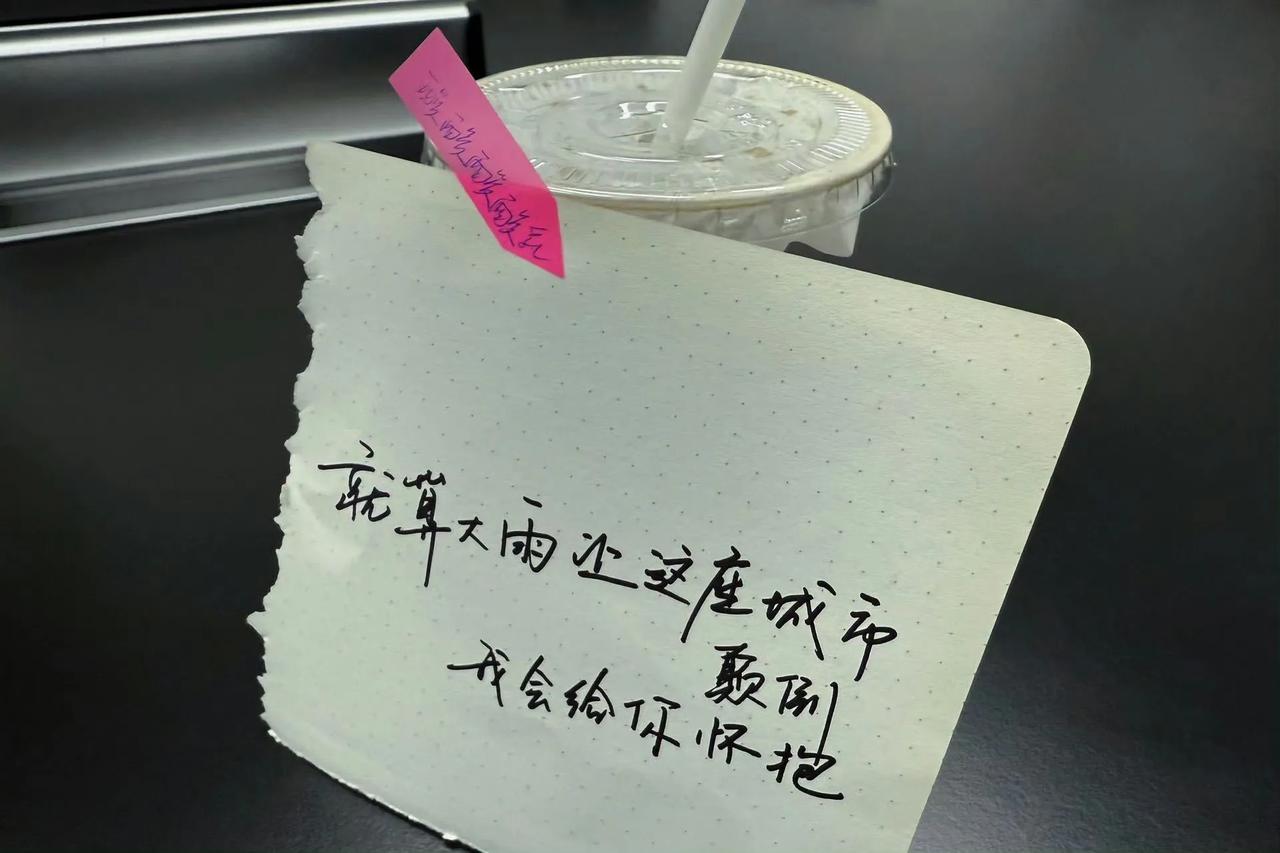 就算大雨让这座城市
颠倒
我会给你怀抱